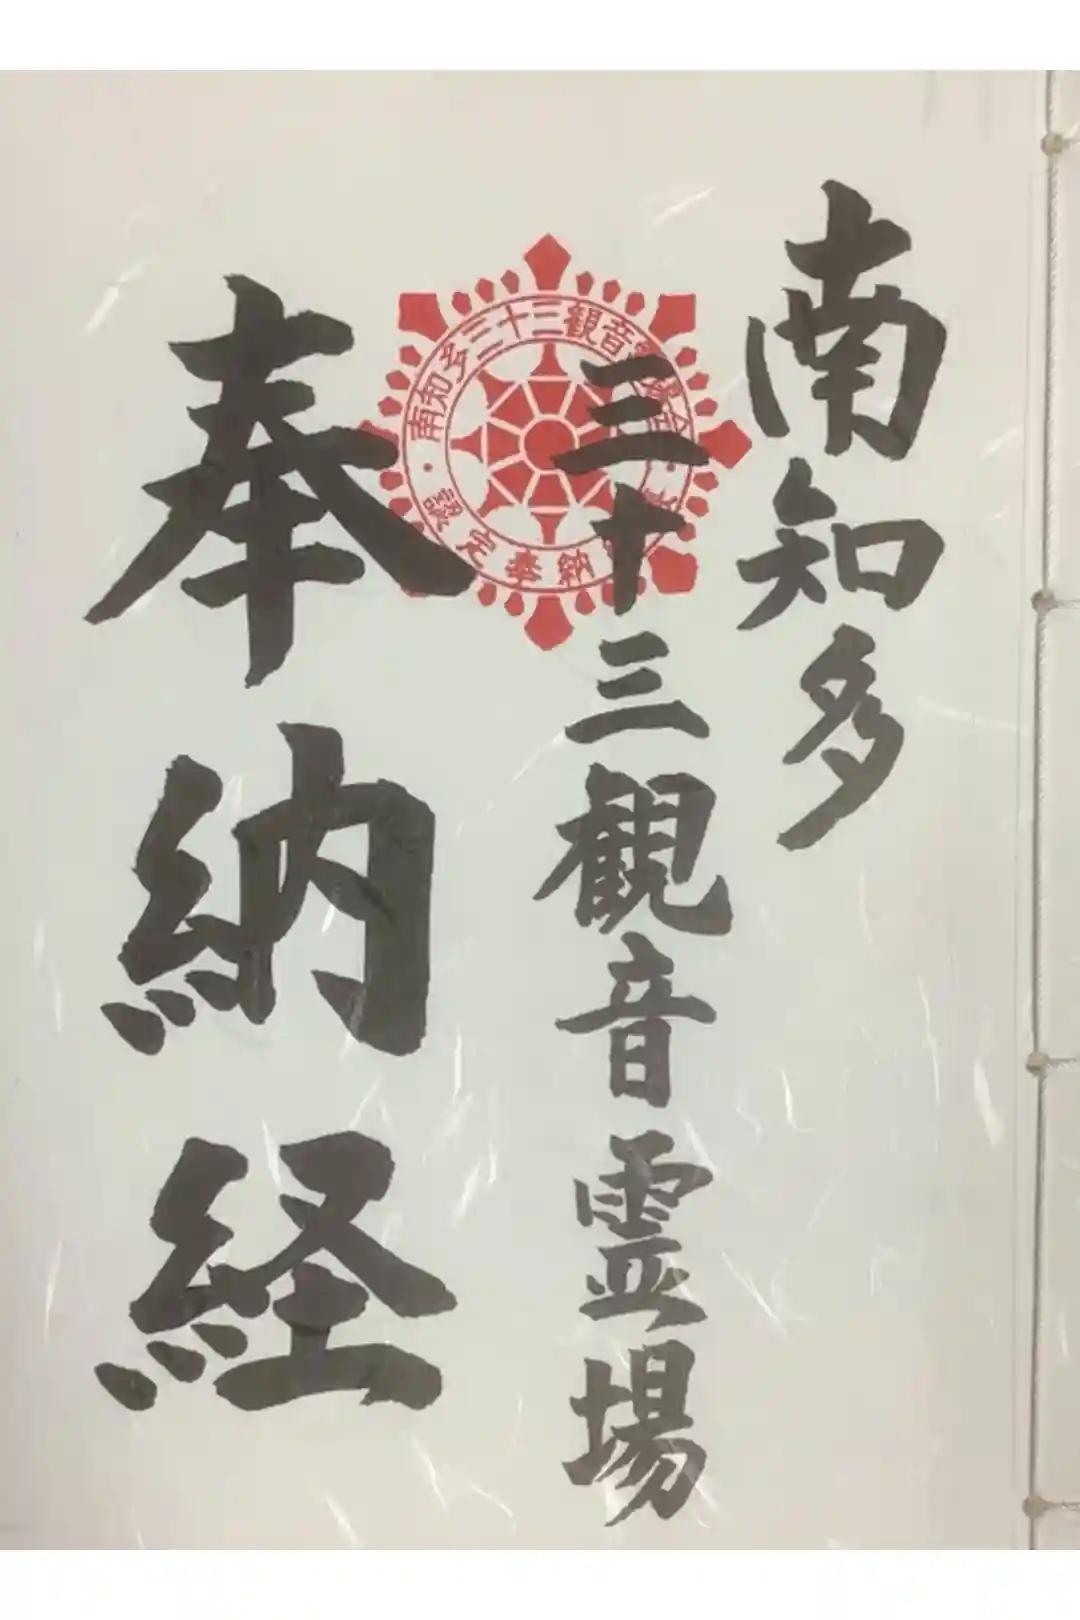 南知多
三十三観音霊場
奉納経
南知多三十三観音
認定奉納